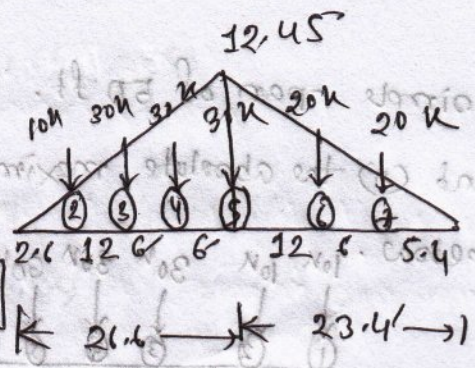 12.45
10k 30k 30k 30k 20k 20k
2 3 4 5 6 7
2.6 12 6 6 12 6 5.4
26.6 23.4